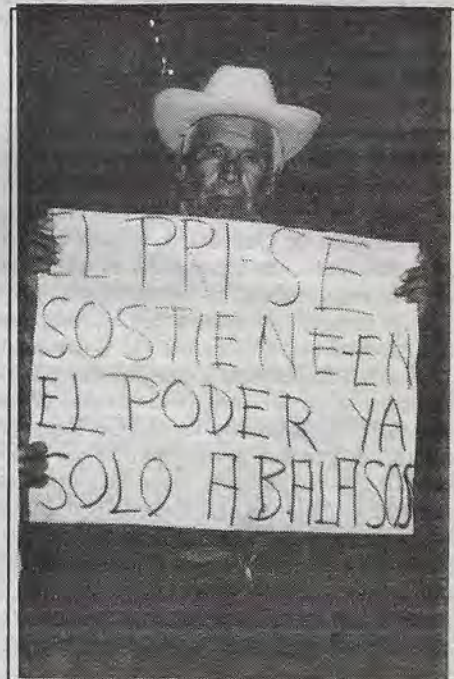 EL PRI-SE
SOSTIENE-EN
EL PODER YA
SOLO A BALASOS